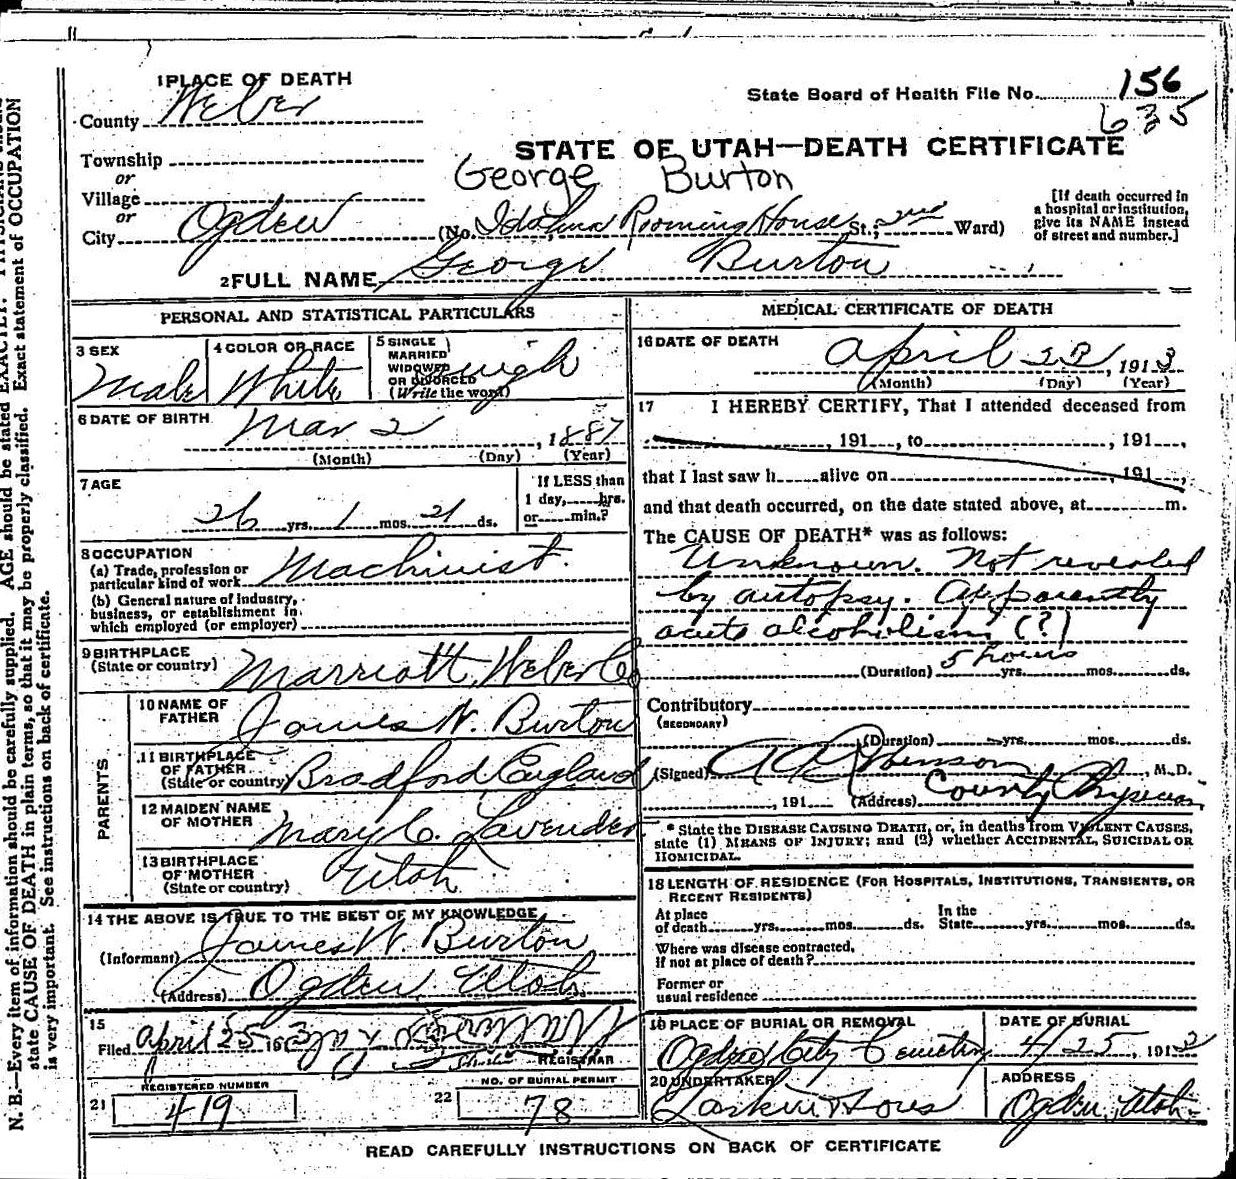 1 PLACE OF DEATH
County Weber
State Board of Health File No. 156
635
Township
or
Village
or
City Ogden
STATE OF UTAH—DEATH CERTIFICATE
George Burton
(No. Rooming House St.; 2nd Ward)
[If death occurred in
a hospital or institution,
give its NAME instead
of street and number.]
2 FULL NAME George Burton
PERSONAL AND STATISTICAL PARTICULARS
3 SEX
Male
4 COLOR OR RACE
White
5 SINGLE
MARRIED
WIDOWED
OR DIVORCED
(Write the word)
6 DATE OF BIRTH
Mar 2, 1887
(Month) (Day) (Year)
7 AGE
26 yrs. 1 mos. 21 ds.
If LESS than
1 day, hrs.
or min.?
8 OCCUPATION
(a) Trade, profession or
particular kind of work Machinist.
(b) General nature of industry,
business, or establishment in
which employed (or employer)
9 BIRTHPLACE
(State or country) Marriott, Weber Co
PARENTS
10 NAME OF
FATHER James W. Burton
11 BIRTHPLACE
OF FATHER
(State or country) Bradford England
12 MAIDEN NAME
OF MOTHER Mary C. Lavender
13 BIRTHPLACE
OF MOTHER
(State or country) Utah
14 THE ABOVE IS TRUE TO THE BEST OF MY KNOWLEDGE
(Informant) James W. Burton
(Address) Ogden, Utah
15
Filed April 25 1913
REGISTRAR
21 REGISTERED NUMBER
419
22 NO. OF BURIAL PERMIT
78
MEDICAL CERTIFICATE OF DEATH
16 DATE OF DEATH
April 23, 1913
(Month) (Day) (Year)
17 I HEREBY CERTIFY, That I attended deceased from
, 191 , to , 191 ,
that I last saw h alive on , 191 ,
and that death occurred, on the date stated above, at m.
The CAUSE OF DEATH* was as follows:
Unknown. Not revealed
by autopsy. Apparently
acute alcoholism (?)
(Duration) 5 hours yrs. mos. ds.
Contributory
(SECONDARY)
(Duration) yrs. mos. ds.
(Signed) , M.D.
, 191 (Address) County Physician
* State the DISEASE CAUSING DEATH, or, in deaths from VIOLENT CAUSES,
state (1) MEANS OF INJURY; and (2) whether ACCIDENTAL, SUICIDAL OR
HOMICIDAL.
18 LENGTH OF RESIDENCE (FOR HOSPITALS, INSTITUTIONS, TRANSIENTS, OR
RECENT RESIDENTS)
At place
of death yrs. mos. ds.
In the
State yrs. mos. ds.
Where was disease contracted,
If not at place of death?
Former or
usual residence
19 PLACE OF BURIAL OR REMOVAL
Ogden City Cemetery
DATE OF BURIAL
4/25, 1913
20 UNDERTAKER
Larkin & Sons
ADDRESS
Ogden, Utah
READ CAREFULLY INSTRUCTIONS ON BACK OF CERTIFICATE
N. B.—Every item of information should be carefully supplied. AGE should be stated EXACTLY. PHYSICIANS should
state CAUSE OF DEATH in plain terms, so that it may be properly classified. Exact statement of OCCUPATION
is very important. See instructions on back of certificate.